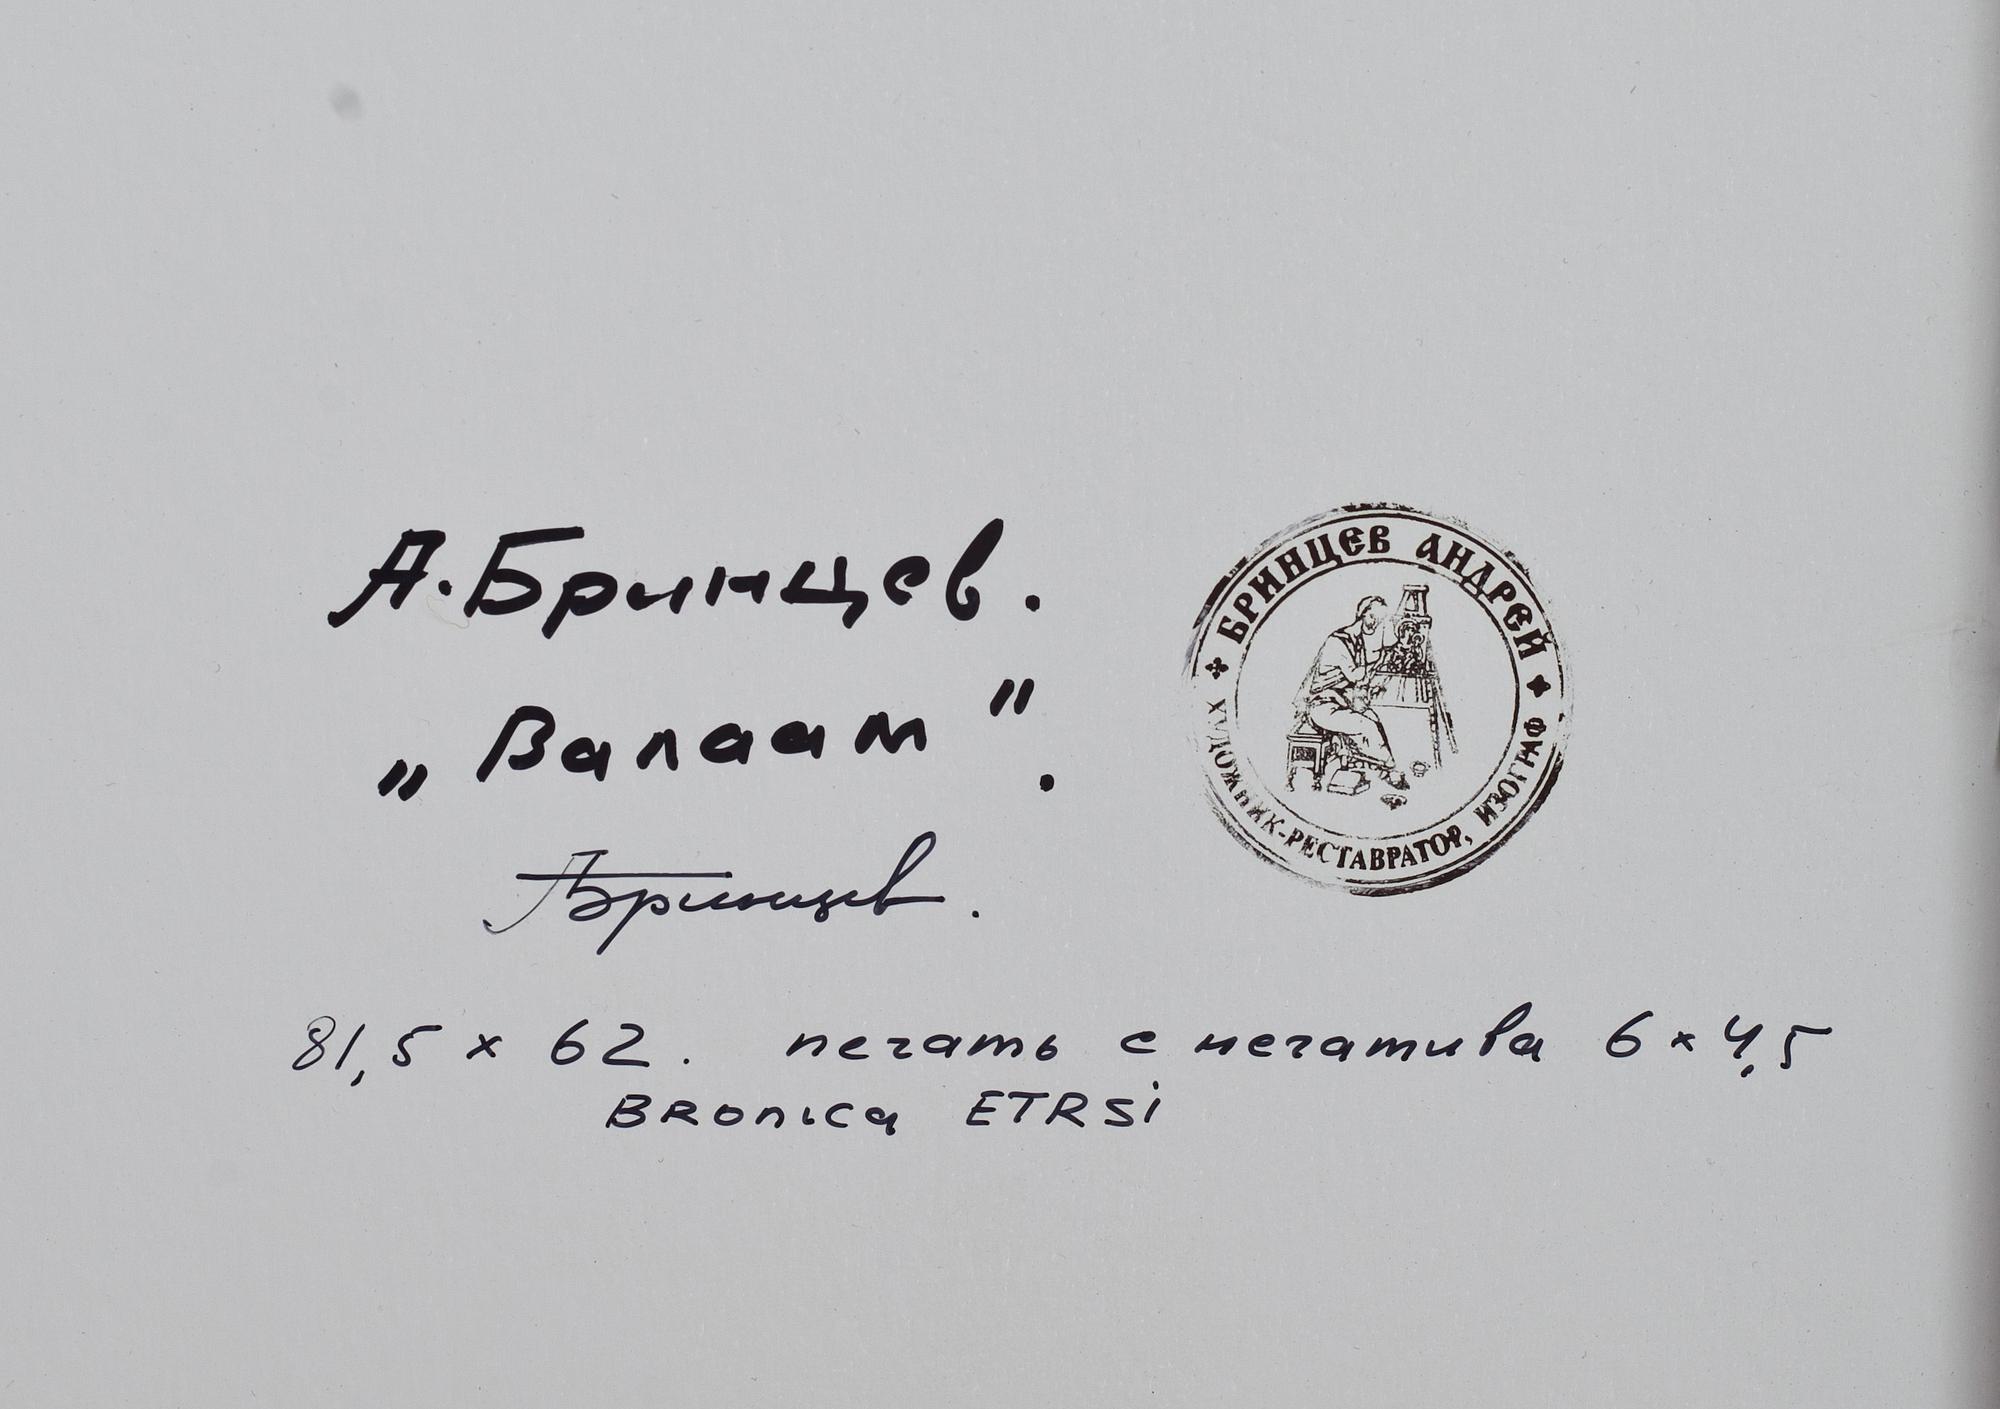 А. Бринцев.
„Валаам".
АБринцев.
БРИНЦЕВ АНДРЕЙ
ХУДОЖНИК-РЕСТАВРАТОР, ИЗОГРАФ
81,5 х 62. печать с негатива 6 х 4,5
BRonica ETRSi